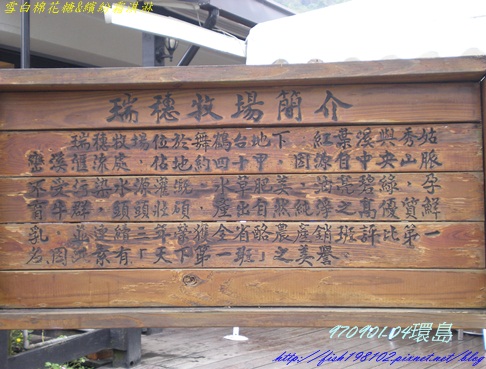 雪白棉花糖&繽紛冰淇淋
瑞穗牧場簡介
瑞穗牧場位於舞鶴台地下 紅葉溪與秀姑
巒溪匯流處，佔地約四十甲，因源自中央山脈
不受污染水源灌溉，水草肥美，洒亮碧綠，孕
育牛群，頭頭壯碩，產出自然純淨之高優質鮮
乳，並連續三年榮獲全省酪農產銷班評比第一
名，因此素有「天下第一班」之美譽。
970901.04環島
http://fish198102.pixnet.net/blog